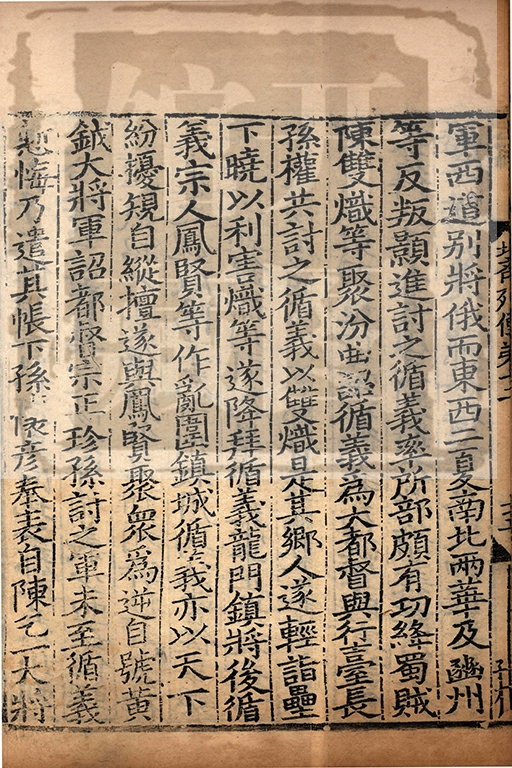 軍西道別將俄而東西二夏南北兩華及豳州
等反叛顥進討之循義率所部頗有功絳蜀賊
陳雙熾等聚汾曲詔循義為大都督與行臺長
孫權共討之循義以雙熾是其鄉人遂輕詣壘
下曉以利害熾等遂降拜循義龍門鎮將後循
義宗人鳳賢等作亂圍鎮城循義亦以天下
紛擾規自縱擅遂與鳳賢聚衆爲逆自號黃
鉞大將軍詔都督宗正珍孫討之軍未至循義
悔乃遣其帳下孫彥奉表自陳乞一大將